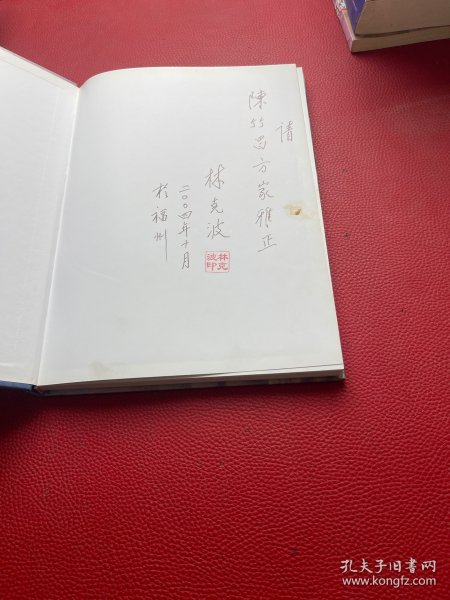 请
陳竹冒方家雅正
林克波
林克波印
二〇〇四年十月
於福州
孔夫子旧书网
www.kongfz.com